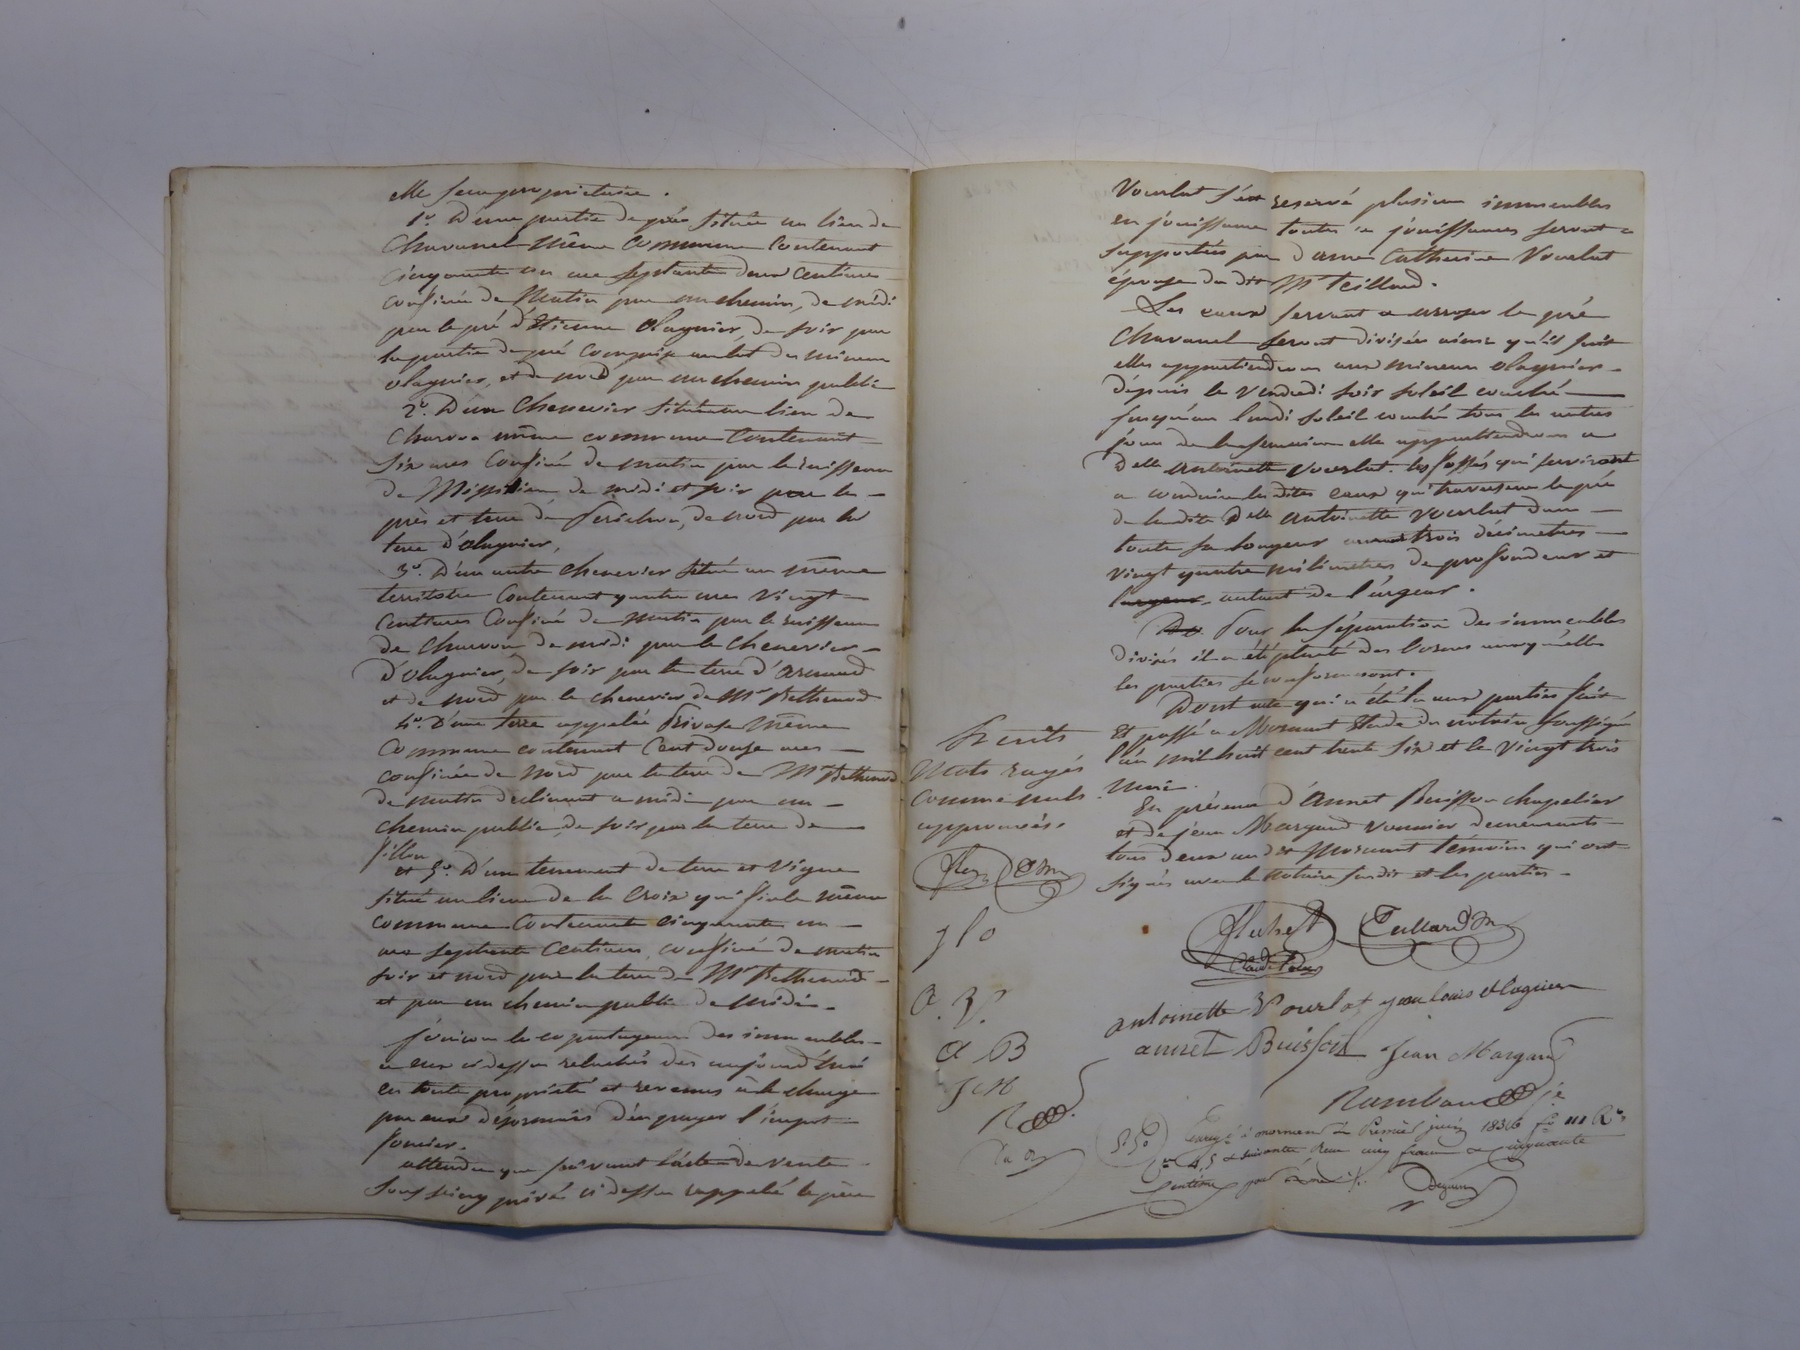 elle sera propriétaire.
1o. D'une partie de pré située au lieu de
Chavanel même Commune Contenant
cinquante un are septante deux Centiares
confinée de Matin par un chemin, de midi
par le pré d'Etienne Olagnier, de soir par
la partie de pré Comprise au lot des mineurs
olagnier, et de nord par un chemin public
2o. D'un Chenevier situé au lieu de
Charvon même commune Contenant
six ares Confiné de matin par le ruisseau
de de midi et soir par les
près et terre de de nord par la
terre d'olagnier,
3o. D'un autre Chenevier situé au même
territoire Contenant quatre ares Vingt
Centiares Confiné de Matin par le ruisseau
de Charvon de midi par le Chenevier
d'Olagnier, de soir par la terre d'Arnaud
et de nord par le chenevier de Mr Bethenod
4o. D'une terre appelée même
Commune contenant Cent douze ares
confinée de Nord par la terre de Mr Bethenod
de matin declinant a midi par un
chemin public, de soir par la terre de
fillon
et 5o. D'un tenement de terre et Vigne
situé au lieu de la Croix même
commune Contenant Cinquante un
are septante Centiares, confiné de matin
soir et nord par la terre de Mr Bethenod
et par un chemin public de Midi.
Jouiront les copartageans des immeubles
a eux ci dessus relachés dès aujourd'hui
en toute propriété et revenus à la charge
par eux désormais d'en payer l'impot
foncier.
attendu que suivant l'acte de vente
sous seing privé ci dessus rappelé le père
Vourlat s'est reservé plusieurs immeubles
en jouissance toutes ces jouissances seront
supportées par dame Catherine Vourlat
épouse du dit Mr Teillard.
Les eaux servant a arroser le pré
Chavanel seront divisées ainsi qu'il suit
elles appartiendront aux mineurs olagnier
depuis le Vendredi soir soleil couché
jusqu'au lundi soleil couché tous les autres
jours de la semaine elle appartiendront a
Delle Antoinette Vourlat. les fossés qui serviront
a conduire les dites eaux qui traversent le pré
de la dite Delle Antoinette Vourlat dans
toute sa longeur auront trois décimetres
vingt quatre milimetres de profondeur et
largeur autant de l'argeur.
Pour la séparation des immeubles
divisés il a été planté des bornes auxquelles
les parties se conformeront.
Dont acte qui a été lu aux parties fait
Et passé a Mornant Etude du notaire soussigné
l'an mil huit cent trente six et le vingt trois
Mai.
En présence d'Annet Buisson chapelier
et de jean Margand Vannier demeurants
tous deux au dit Mornant témoins qui ont
signés avec le Notaire susdit et les parties
Mots rayés
comme nuls
approuvés.
jlo
a. V.
a B
J M
Teillard
antoinette Vourlat jean louis Olagnier
annet Buisson Jean Margand
Rambaud
5,50 Enregé à mornant le Premier juin 1836 fo 111 Ro
Cn 4, 5 et suivantes Reçu cinq francs et cinquante
Centimes pour